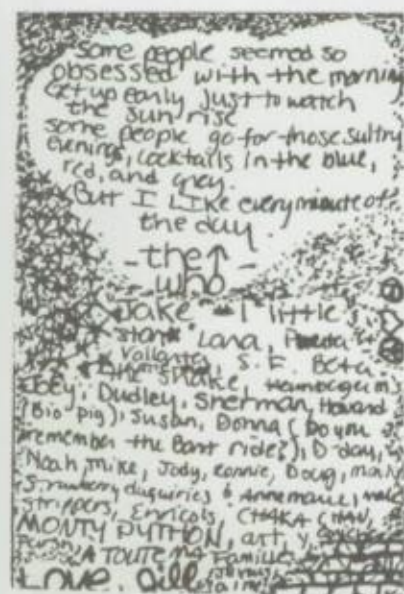 Some people seemed so
obsessed with the morning
Get up early just to watch
the sun rise
some people go for those sultry
evenings, cocktails in the blue,
red, and grey.
But I LIKE every minute of
the day.
- the
who -
Jake - "I little
Star" Lana,
Vallanta, S.F. Beta
THE SNAKE,
Joey, Dudley, Sherman, Howard
(Bio pig), Susan, Donna (Do you
remember the Bart ride?), D-day,
Noah, Mike, Jody, Ronnie, Doug,
Strawberry daquiries & Annemarie,
strippers, Enricols, CHAKA CHAN,
MONTY PYTHON, art, y,
A TOUTE MA FAMILLE
LOVE, Jill